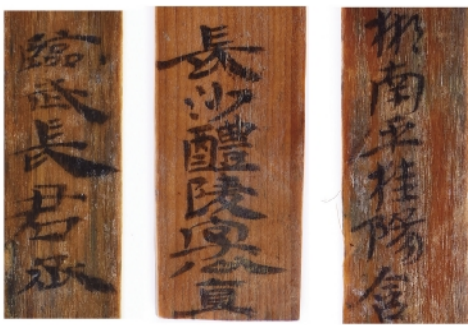 南平桂陽
長沙醴陵
臨武長君丞